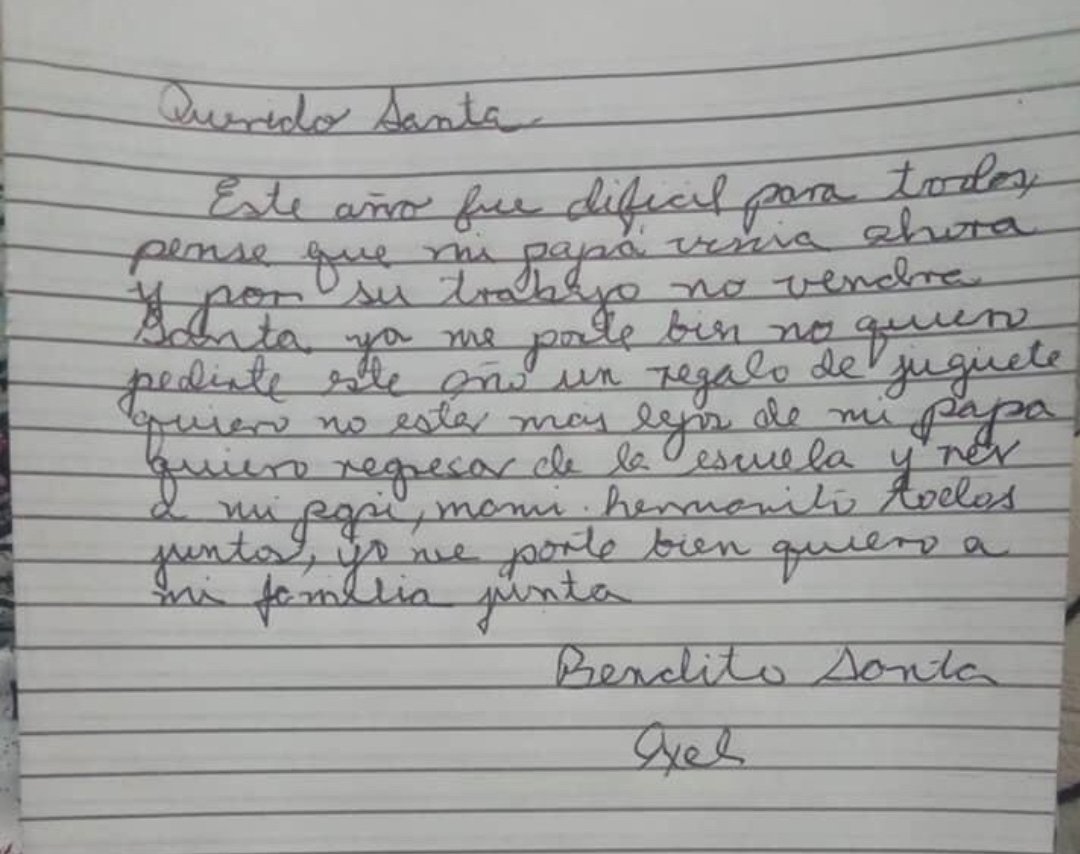 Querido Santa
Este año fue dificil para todos,
pense que mi papá venia ahora
y por su trabajo no vendra
Santa yo me porte bien no quiero
pedirte este año un regalo de juguete
quiero no estar mas lejos de mi papa
quiero regresar de la escuela y ver
a mi papi, mami hermanito todos
juntos, yo me porte bien quiero a
mi familia junta
Bendito Santa
Axel